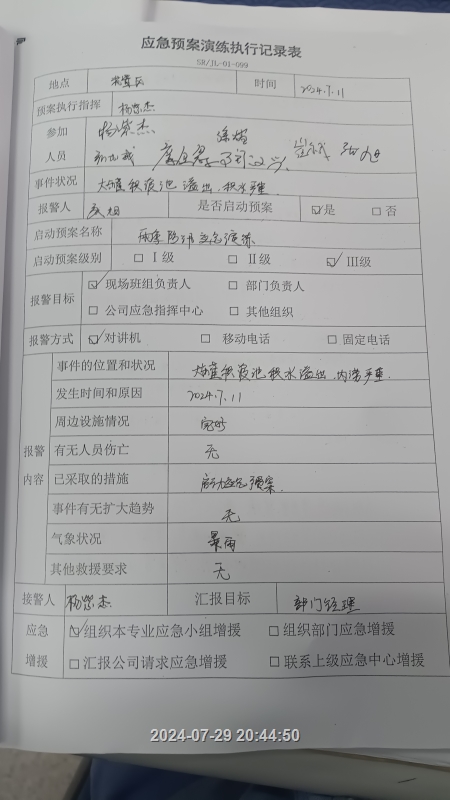 应急预案演练执行记录表
SR/JL-01-099
地点 时间 2024.7.11
预案执行指挥
参加
人员
事件状况 积液池溢出、积水严重
报警人 是否启动预案 ☑是 □否
启动预案名称 雨季防汛应急演练
启动预案级别 □Ⅰ级 □Ⅱ级 ☑Ⅲ级
报警目标 ☑现场班组负责人 □部门负责人
□公司应急指挥中心 □其他组织
报警方式 ☑对讲机 □移动电话 □固定电话
报警内容
事件的位置和状况 积液池积水溢出、内涝严重.
发生时间和原因 2024.7.11
周边设施情况 完好
有无人员伤亡 无
已采取的措施 启动应急预案.
事件有无扩大趋势 无
气象状况 暴雨
其他救援要求 无
接警人 汇报目标 部门经理
应急 ☑组织本专业应急小组增援 □组织部门应急增援
增援 □汇报公司请求应急增援 □联系上级应急中心增援
2024-07-29 20:44:50